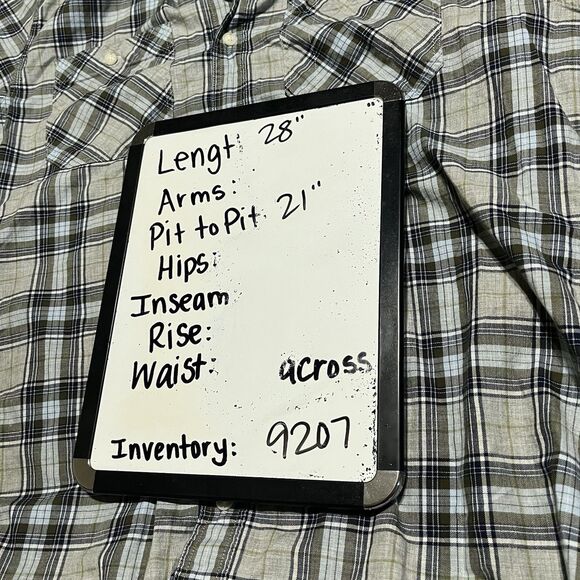 Lengt: 28"
Arms:
Pit to Pit 21"
Hips:
Inseam
Rise:
Waist: across
Inventory: 9207